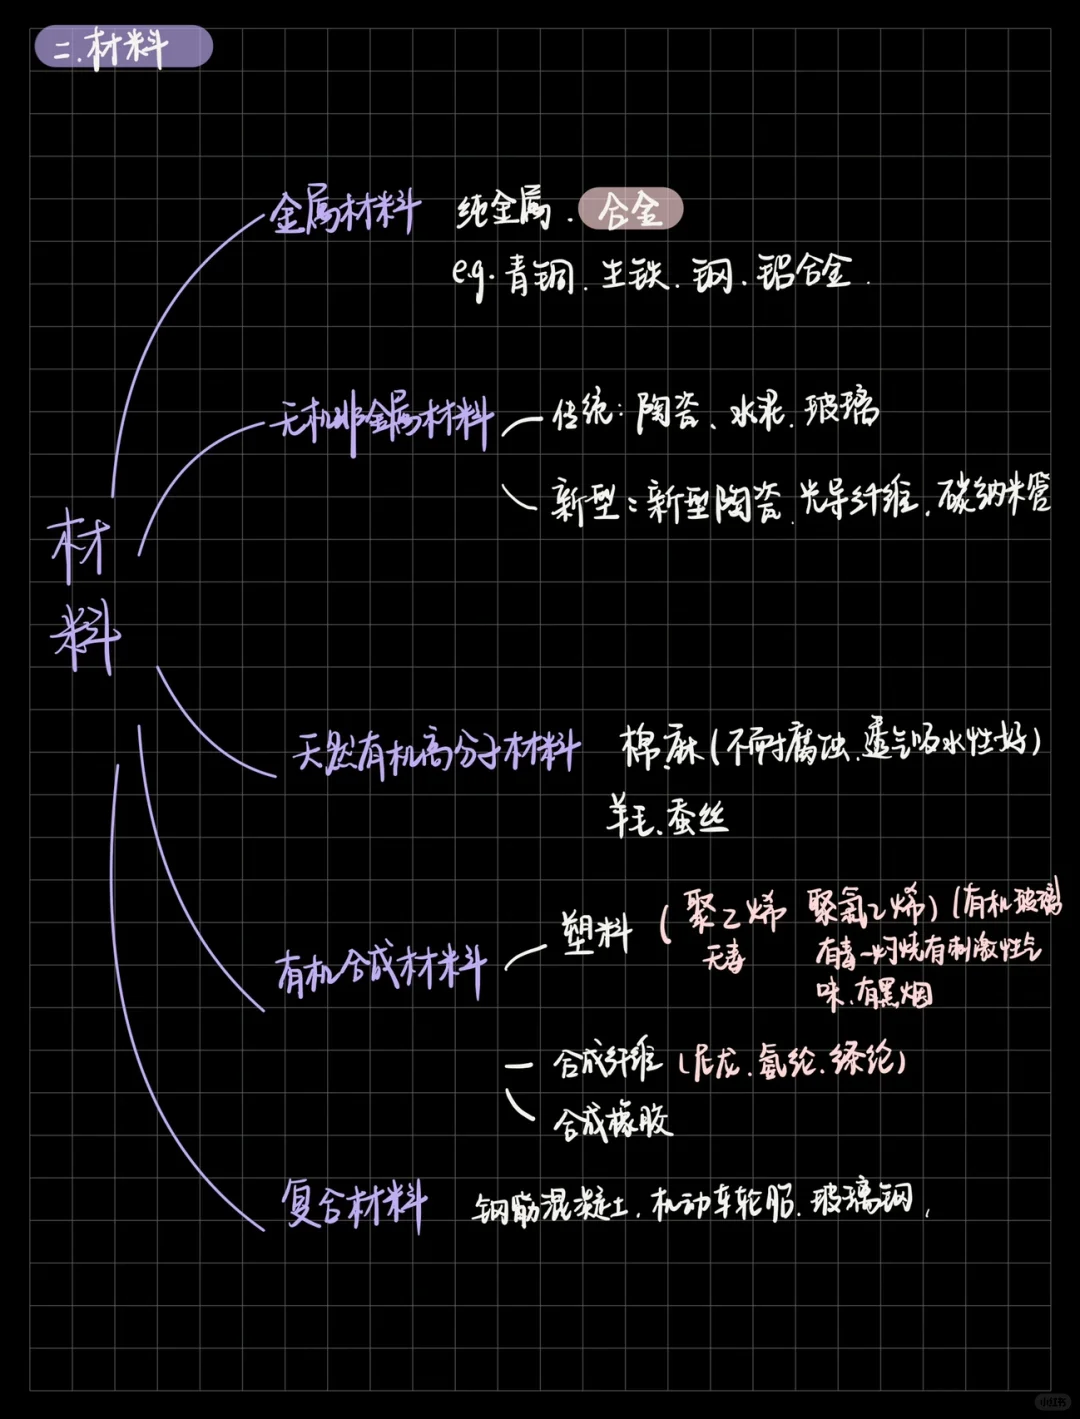 二.材料
金属材料 纯金属. 合金
e.g.青铜.生铁.钢.铝合金.
无机非金属材料
传统:陶瓷、水泥.玻璃
新型:新型陶瓷.光导纤维.碳纳米管
材料
天然有机高分子材料 棉.麻(不耐腐蚀.透气吸水性好)
羊毛、蚕丝
有机合成材料
塑料 (聚乙烯 聚氯乙烯)(有机玻璃
无毒 有毒-灼烧有刺激性气
味.有黑烟
合成纤维 (尼龙.氨纶.绦纶)
合成橡胶
复合材料 钢筋混凝土.机动车轮胎.玻璃钢,
小红书